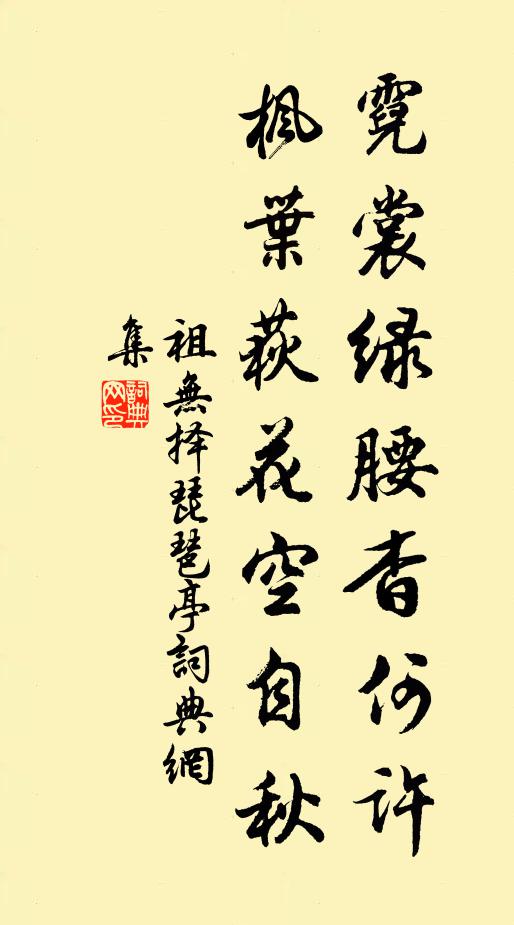 霓裳绿腰杳何许
枫葉荻花空自秋
祖無择琵琶亭詞典網
集
詞典網印